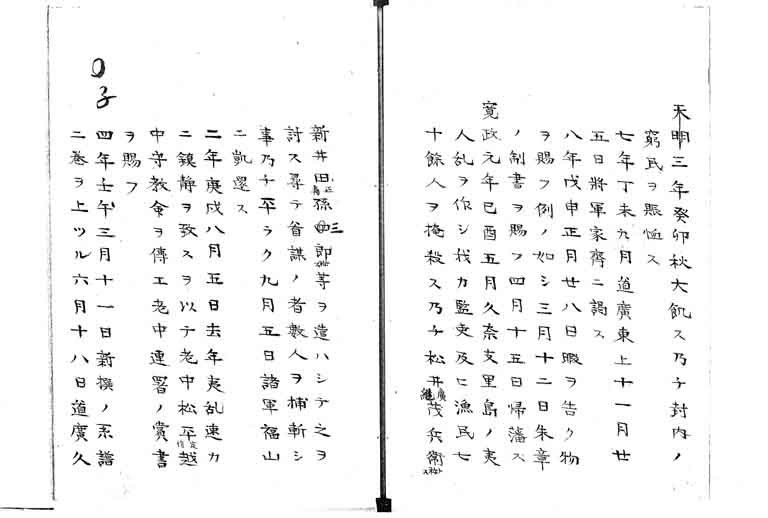 天明三年癸卯秋大飢ス乃チ封内ノ
窮民ヲ賑恤ス
七年丁未九月道廣東上十一月廿
五日將軍家齊ニ謁ス
八年戊申正月廿八日暇ヲ告ク物
ヲ賜フ例ノ如シ三月十二日朱章
ノ制書ヲ賜フ四月十五日帰藩ス
寛政元年已酉五月久奈支里島ノ夷
人乱ヲ作シ我カ監吏及ヒ漁民七
十餘人ヲ掩殺ス乃チ松井茂兵衛廣継
新井田孫三郎等ヲ遣ハシテ之ヲ
討ス尋テ首謀ノ者數人ヲ捕斬シ
事乃チ平ラク九月五日諸軍福山
ニ凱還ス
二年庚戌八月五日去年夷乱速カ
ニ鎮静ヲ致スヲ以テ老中松平越
中守定信教命ヲ傳エ老中連署ノ賞書
ヲ賜フ
〇子
四年壬子三月十一日新撰ノ系譜
二巻ヲ上ツル六月十八日道廣久